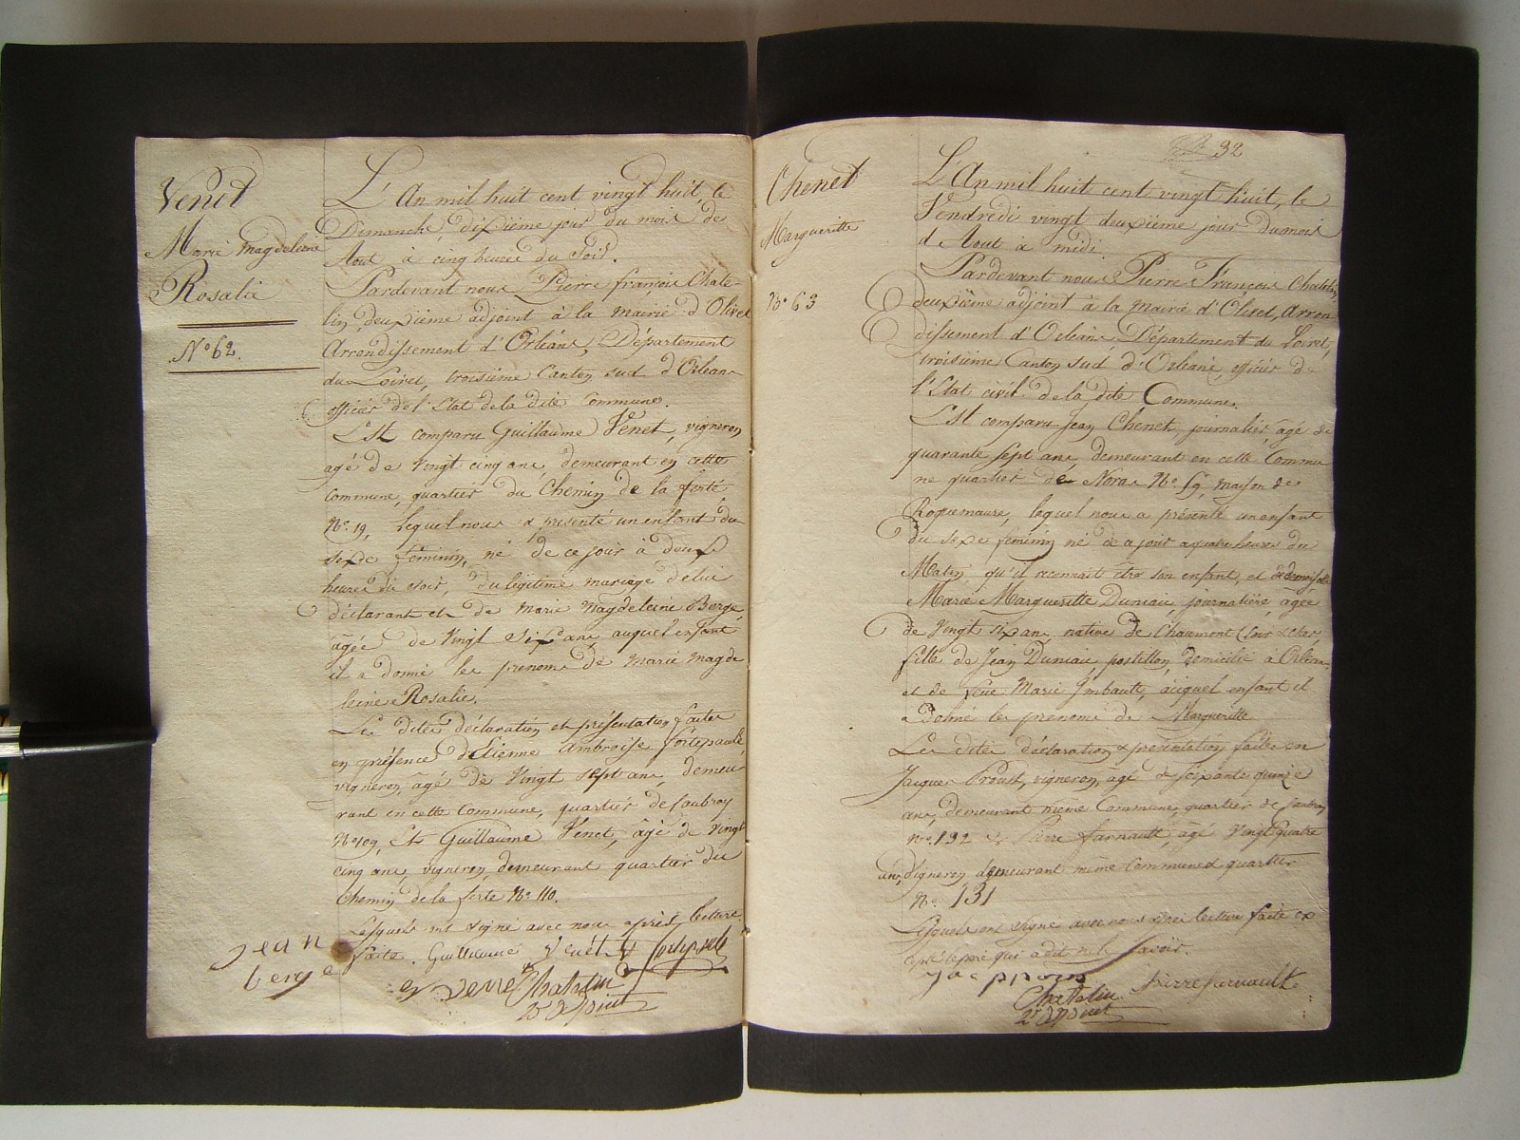 Venet
Marie Magdeleine
Rosalie
N.º 62.
L'An mil huit cent vingt huit, le
Dimanche dixième jour du mois de
Aout à cinq heures du Soir.
Pardevant nous Pierre françois Chate-
lin deuxième adjoint à la mairie d'Olivet
Arrondissement d'Orléans, Département
du Loiret, troisième Canton sud d'Orléans
officier de l'Etat de la dite Commune.
Est comparu Guillaume Venet, vigneron
agé de vingt cinq ans, demeurant en cette
Commune, quartier du Chemin de la ferté
N.º 19, lequel nous a presenté un enfant du
sexe féminin, né de ce jour à deux
heures du soir, du légitime mariage de lui
déclarant et de Marie Magdeleine Bergé,
âgée de Vingt Six ans, auquel enfant
il a donné les prenoms de Marie Magde
leine Rosalie.
Les dites déclaration et présentation faites
en présence d'Etienne Ambroise fortepaule,
vigneron, âgé de Vingt sept ans, demeu-
rant en cette Commune, quartier de Coubroy
N.º 109, Et Guillaume Venet, âgé de Vingt
cinq ans, vigneron, demeurant quartier du
Chemin de la ferté N.º 110.
Lesquels ont signé avec nous après lecture
faite. Guillaume Venét
jean
berge
Chatelin
2e adjoint
32
Chenet
Margueritte
N.º 63
L'An mil huit cent vingt huit, le
Vendredi vingt deuxième jour du mois
d'Aout à midi.
Pardevant nous Pierre François Chatelin
deuxième adjoint à la mairie d'Olivet, Arron
dissement d'Orléans, Département du Loiret,
troisième Canton sud d'Orléans, officier de
l'Etat civil de la dite Commune.
Est comparu Jean Chenet, journalier, agé de
quarante sept ans, demeurant en cette Commu
ne quartier de Noras N.º 19, maison de
Roquemaure, lequel nous a présenté un enfant
du sexe féminin né ce jour a quatre heures du
Matin, qu'il reconnait être son enfant, et de demoiselle
Marie Margueritte Duniau, journalière, agée
de Vingt six ans, native de Chaumont (Loir et cher)
fille de Jean Duniau, postillon, domicilié à Orléans
et de feue Marie Imbault, auquel enfant il
a donné les prenoms de Margueritte
Les dites déclaration & présentation faites en
Jacques Proust, vigneron, âgé de soixante quinze
ans, demeurant même Commune, quartier de Coubroy
N.º 132 & Pierre farnault, agé Vingt quatre
ans, Vigneron demeurant même Commune & quartier
N.º 131
Lesquels ont signé avec nous après lecture faite ex
cepté le pere qui a dit ne le savoir.
Chatelin
2e adjoint
pierre farnault